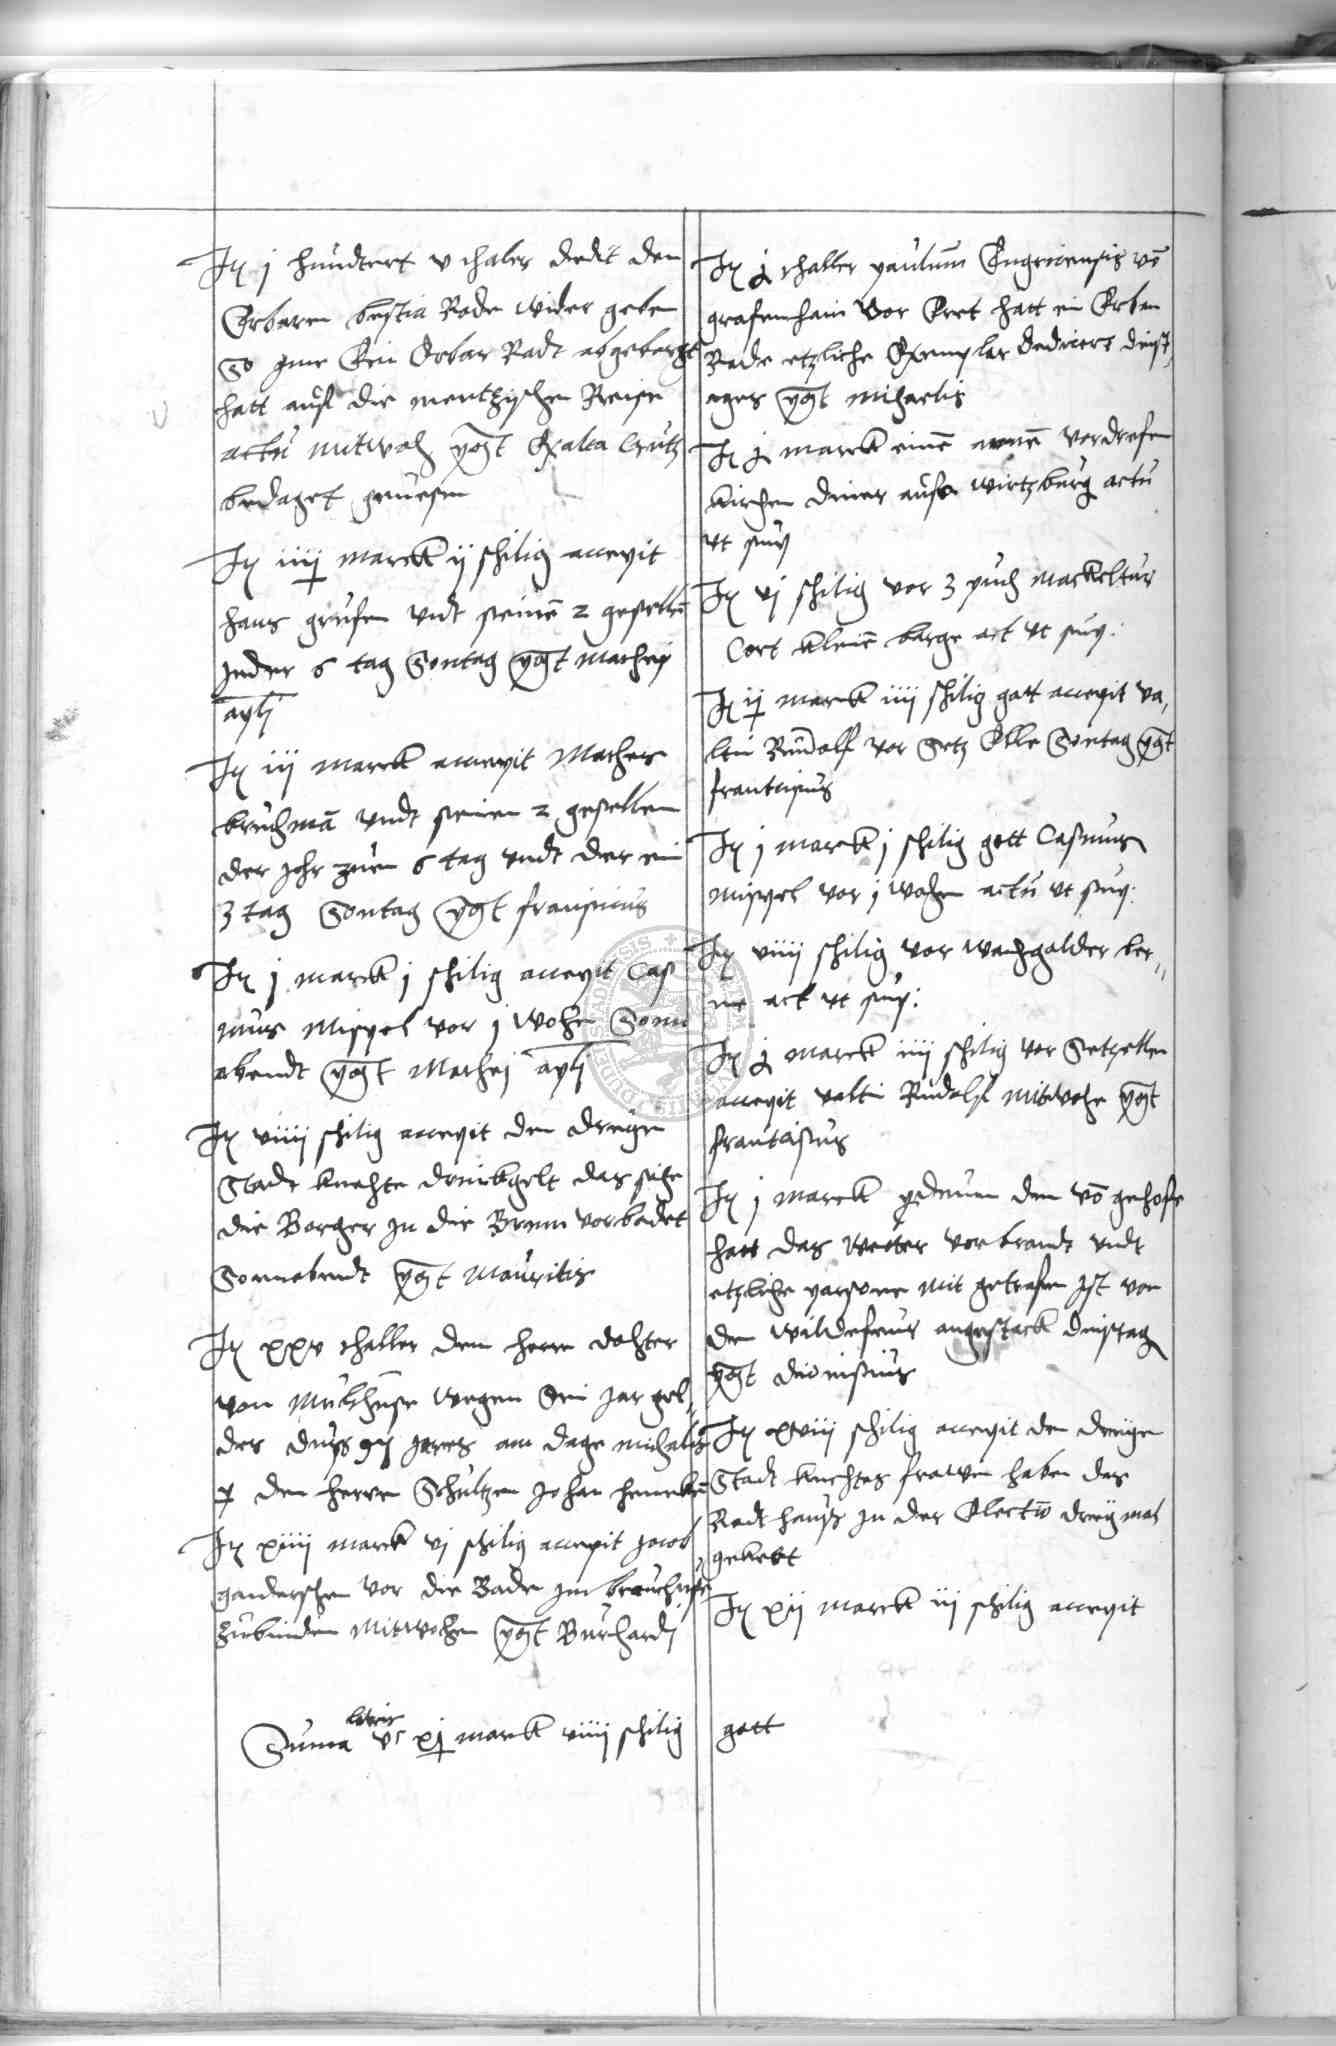 It j hundert v thaler dedit den
Erbaren bastia Rode wider geben
So jme Ein Erbar Radt abgeborgt
hatt auff die mentzischen Reise
actū mitwoch pōst Exalta Crutz
bedaget gewesen
It iiij marck ij schilig accepit
hans grusen undt seinē 2 gesellē
jeder 6 tag Sontag pōst Mathej
apli
It iij marck accepit Mathes
bruchmā undt seinen 2 gesellen
der jhr zuen 6 tag undt der ein
3 tag Sontag pōst fransicus
It j marck j schilig accepit Cas
mus Mispel vor j wochen Sonn
abendt pōst Mathej apli
It viiij schilig accepit den dreyen
Stadt knechte drinckgelt das sie
die Borger in die Brunn vorbadet
Sonnabendt pōst Mauritis
It xxv thaller dem herrn dochter
von Mulhusen wegen Sein jar gel,
des dusses 97 jares am dage michalis
p den herren Schultzen johan
It xiiij marck vj schilig accepit jacob
gandersschen vor die Bade jm
zubinden Mitwochen pōst Burchardj
It j thaller paulum vō
grafenhain vor Eret hatt ein Erbar
Rade etzliche Exemplar dedicert dinst,
ages pōst Michaelis
It j marck einē armē vordrefen
kirchen diner auser wirtzburg actū
ut sup
It vj schilig vor 3 puch Mackeltur
Cort kleinē barge act ut sup:
It ij marck iiij schilig gott accepit va,
ltin Rudolff vor Setz Elle Sontag pōst
frantcisus
It j marck j schilig gott Casmus
Mispel vor j wochen actū ut sup:
It viiij schilig vor wachgolder ber,,
ne act ut sup:
It j marck iiij schilig vor Setzellen
accepit valtin Rudolff Mitwoche pōst
frantcisus
It j marck den vō gehofe
hatt das Wetter vorbrandt undt
etzliche parsone mit getrofen ist von
den wildefeur angestackt dinstag
pōst dionisius
It xviij schilig accepit den dreyen
Stadt knechtes frawen haben das
Radthauss in der Electiō dreymal
gekert
It xij marck iij schilig accepit
lateris
Suma vc xj marck viiij schilig gott